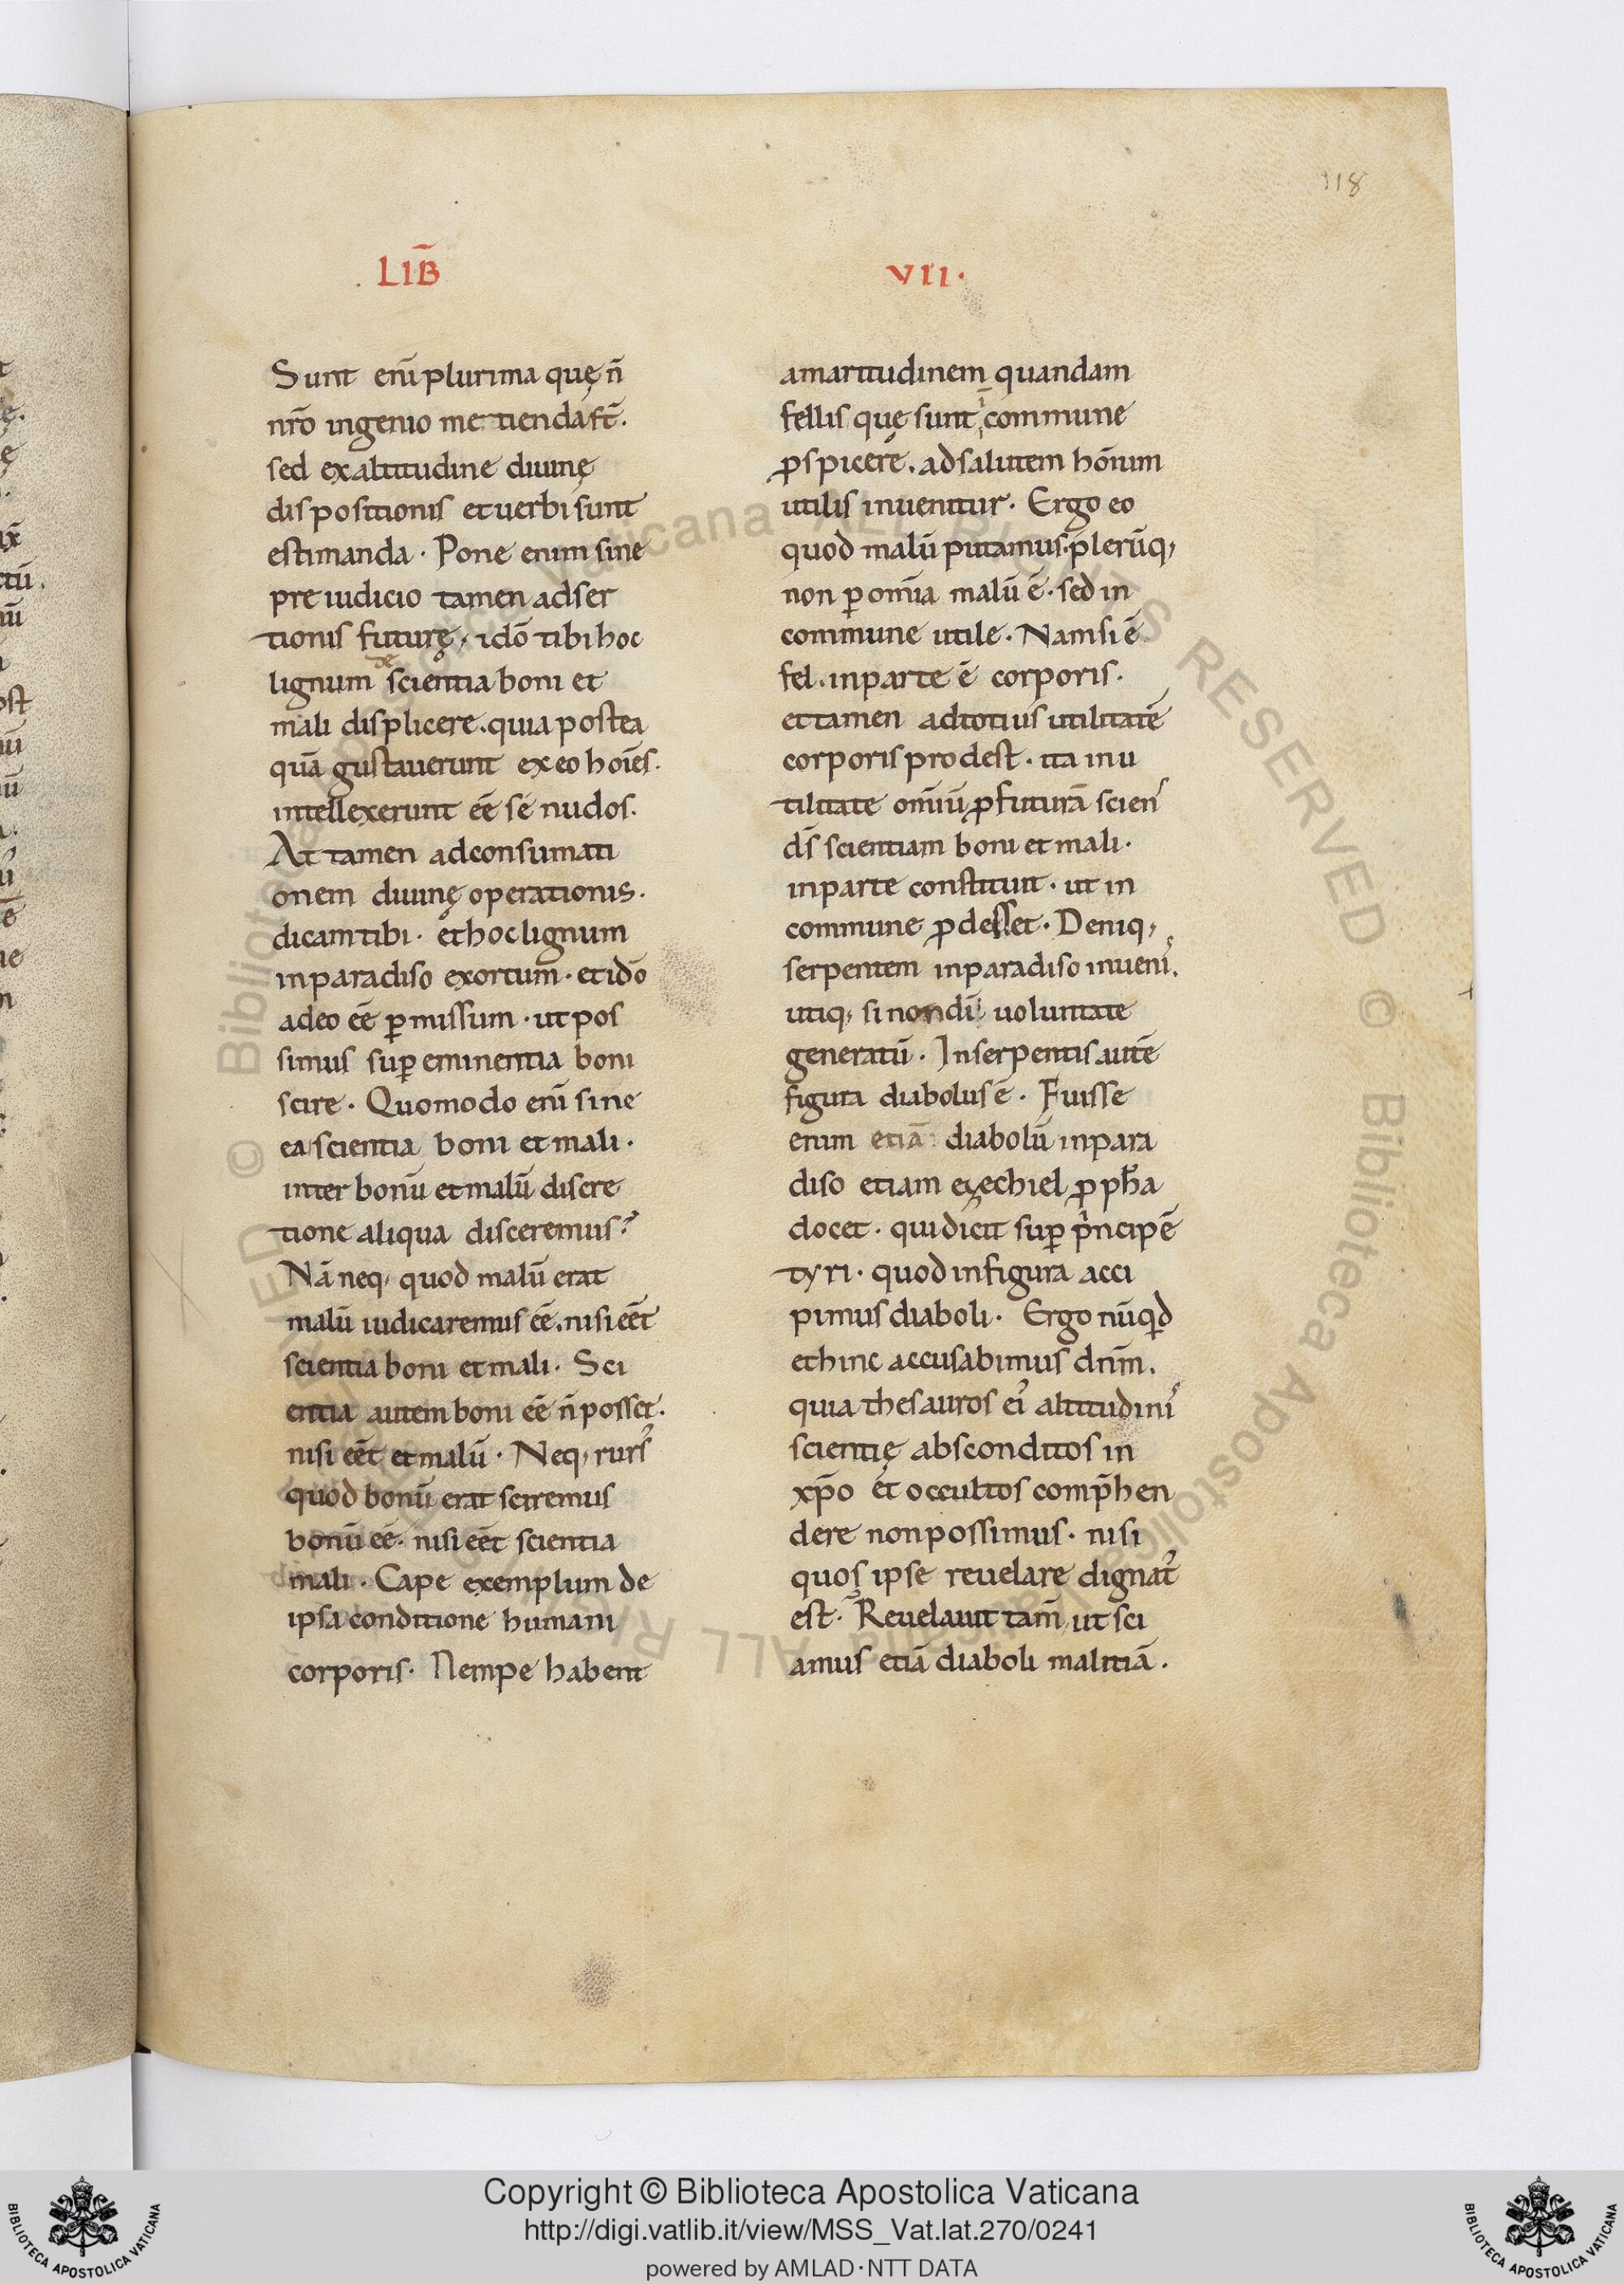 118
LIB̄
VII·
Sunt enī plurima quę n̄
nr̄o ingenio metienda st̄.
sed ex altitudine diuinę
dispositionis et uerbi sunt
estimanda· Pone enim sine
preiudicio tamen adser
tionis futurę, idō tibi hoc
lignum de scientia boni et
mali displicere. quia postea
quā gustauerunt ex eo hoīes·
intellexerunt eē se nudos.
At tamen ad consumati
onem diuinę operationis.
dicam tibi· et hoc lignum
in paradiso exortum· et idō
a deo eē p̄missum· ut pos
simus sup̄ eminentia boni
scire· Quomodo enī sine
ea scientia boni et mali·
inter bonū et malū discre
tione aliqua disceremus?
Nā neq, quod malū erat
malū iudicaremus eē. nisi eēt
scientia boni et mali· Sci
entia autem boni eē n̄ posset.
nisi eēt et malū· Neq, rurs᾽
quod bonū erat sciremus
bonū eē· nisi eēt scientia
mali· Cape exemplum de
ipsa conditione humani
corporis· Nempe habent
amaritudinem quandam
fellis quę sunt, ī commune
ꝓspicere. ad salutem hōnum
utilis inuenitur· Ergo eo
quod malū putamus· plerūq,
non ꝑ omīa malū ē· sed in
commune utile· Nam si ē
fel. in parte ē corporis·
et tamen ad totius utilitatē
corporis prodest· ita in u
tilitate omīū ꝓfuturā scien᾽
ds̄ scientiam boni et mali·
in parte constituit· ut in
commune ꝓdesset· Deniq,
serpentem in paradiso inueni᾽.
utiq, si non dī uoluntate
generatū· In serpentis autē
figura diabolus ē· Fuisse
enim etiā diabolū in para
diso etiam ezechiel ꝓph̄a
docet· qui dicit sup̄ pͥncipē
tyri· quod in figura acci
pimus diaboli· Ergo nūqͥd
et hinc accusabimus dn̄m.
quia thesauros ei᾽ altitudini᾽
scientię absconditos in
xp̄o et occultos comp̄hen
dere non possimus· nisi
quos ipse reuelare dignat᾽
est· Reuelauit tam̄, ut sci
amus etiā diaboli malitiā·
Copyright © Biblioteca Apostolica Vaticana
http://digi.vatlib.it/view/MSS_Vat.lat.270/0241
powered by AMLAD·NTT DATA
BIBLIOTECA APOSTOLICA VATICANA
BIBLIOTECA APOSTOLICA VATICANA